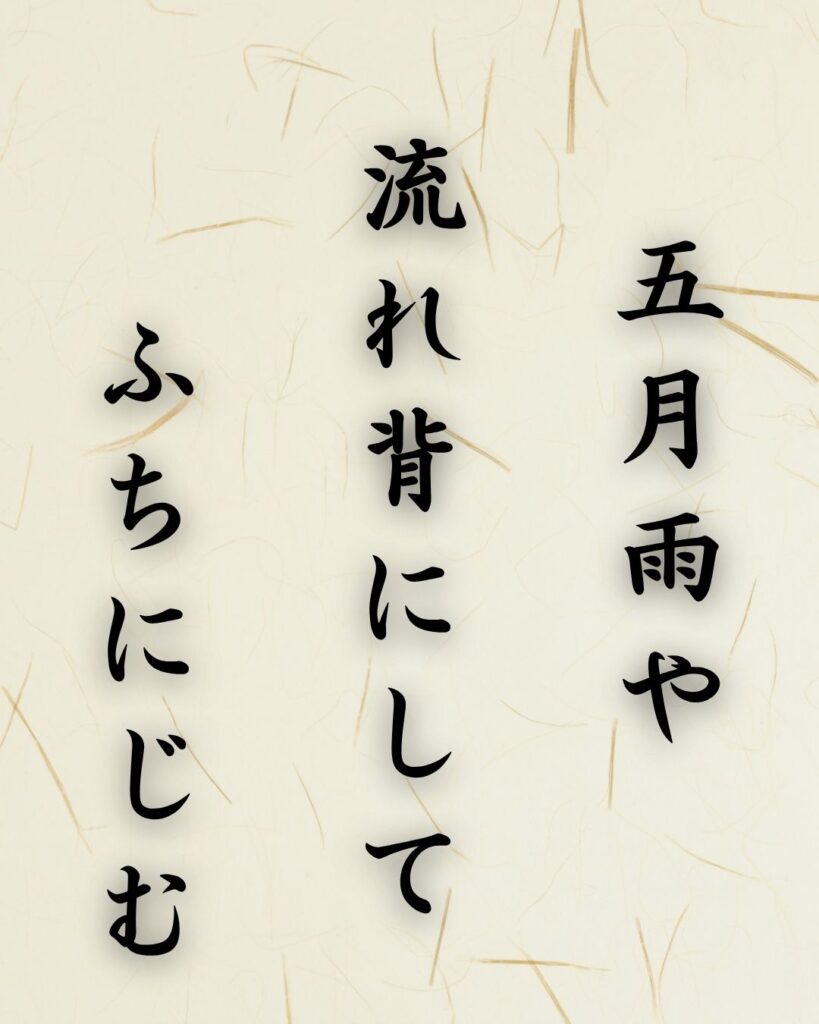 五月雨や
流れ背にして
ふちにじむ